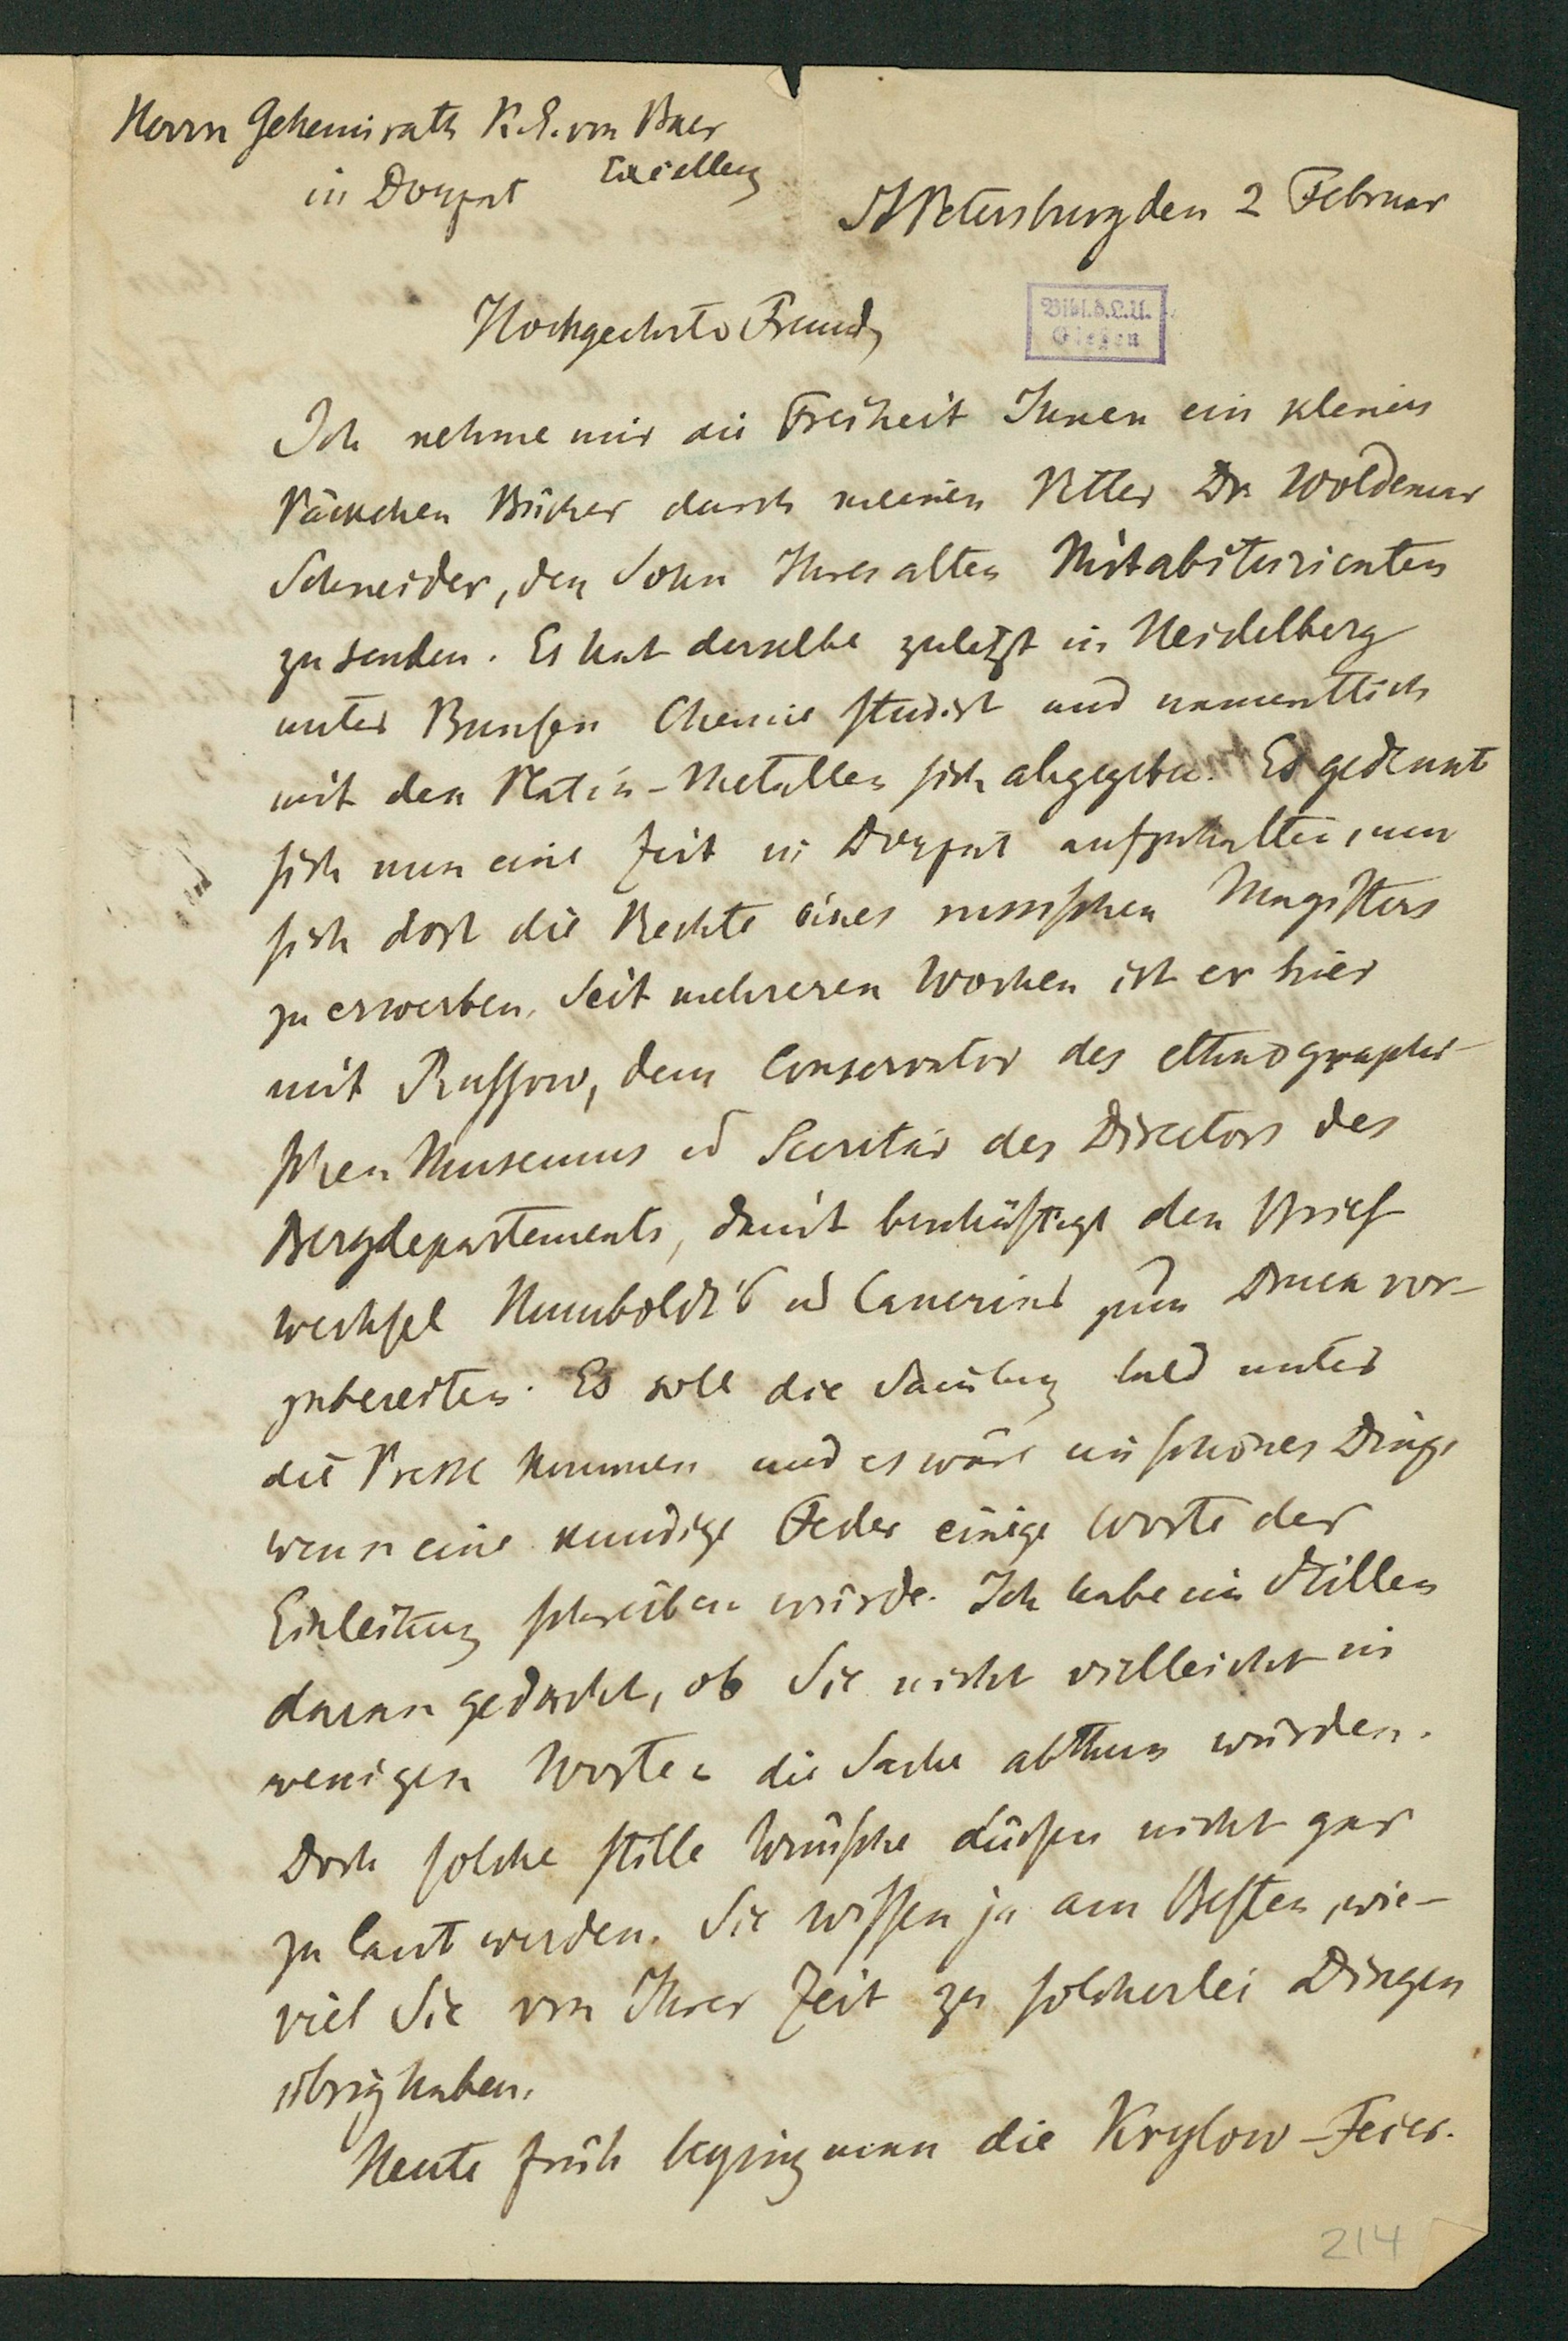 Herrn Geheimrath K. E. von Baer
Excellenz
in Dorpat
St Petersburg den 2 Februar
Hochgeehrter Freund,
Bibl.d.L.U.
Gießen
Ich nehme mir die Freiheit Ihnen ein kleines
Päckchen Bücher durch meinen Vetter Dr Woldemar
Schneider, den Sohn Ihres alten Mitabiturienten
zu senden. Es hat derselbe zuletzt in Heidelberg
unter Bunsen Chemie studirt und namentlich
mit den Platin-Metallen sich abgegeben. Er gedenkt
sich nun eine Zeit in Dorpat aufzuhalten, um
sich dort die Rechte eines russischen Magisters
zu erwerben. Seit mehreren Wochen ist er hier
mit Russow, dem Conservator des ethnographi-
schen Museums ud Secretär des Directors des
Bergdepartements, damit beschäftigt den Brief
wechsel Humboldt's ud Cancrins zum Druck vor-
zubereiten. Es soll die Samlung bald unter
die Presse kommen und es wäre ein schönes Ding,
wenn eine kundige Feder einige Worte der
Einleitung schreiben würde. Ich habe im Stillen
daran gedacht, ob Sie nicht vielleicht in
wenigen Worten die Sache abthun würden.
Doch solche stille Wünsche dürfen nicht gar
zu laut werden. Sie wissen ja am Besten, wie-
viel Sie von Ihrer Zeit zu solcherlei Dingen
übrig haben.
Heute früh beging man die Krylow-Feier.
214